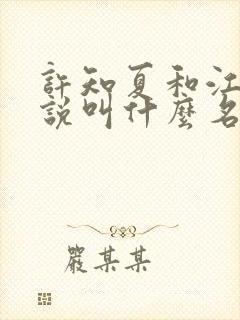 許知夏和江
說叫什麼名
嚴某某